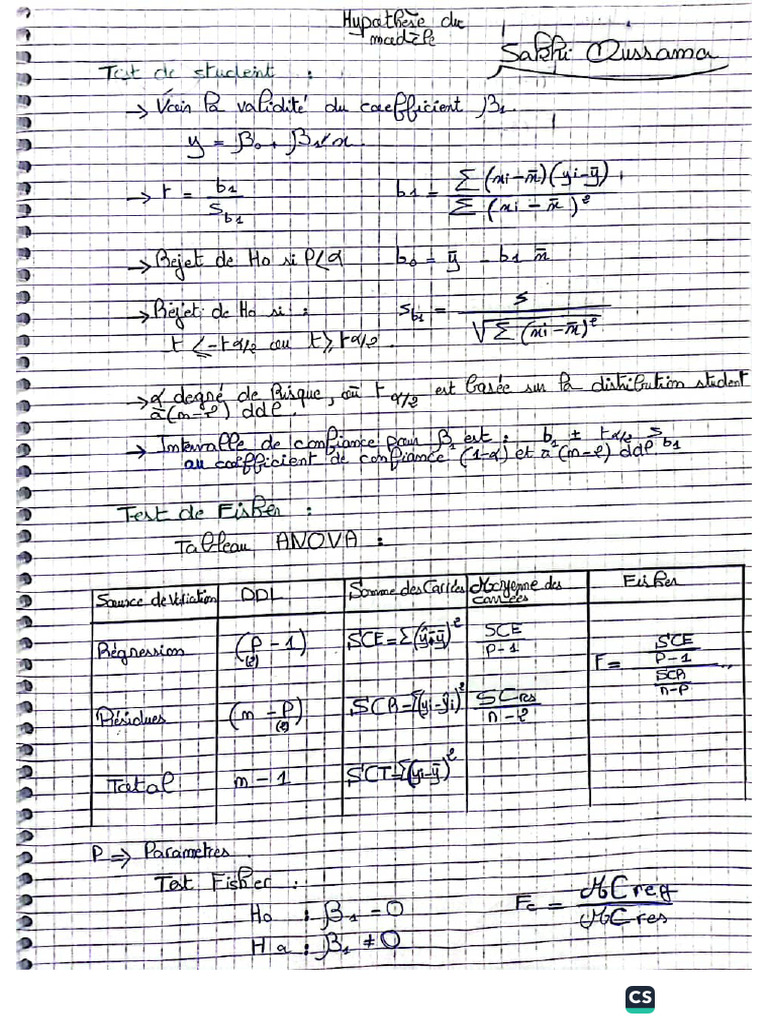 Hypothèse du
modèle
Sakhi Oussama
Test de student :
→ Voir la validité du coefficient β₁.
y = β₀ + β₁x.
→ t = b₁ / S_b₁
b₁ = Σ (xi – x̄)(yi – ȳ) / Σ (xi – x̄)²
→ Rejet de H₀ si P < α
b₀ = ȳ – b₁ x̄
→ Rejet de H₀ si :
t ≤ -t α/2 ou t ≥ t α/2.
S_b₁ = s / √Σ (xi – x̄)²
→ α degré de Risque, où t α/2 est basée sur la distribution student
à (n-2) ddl.
→ Intervalle de confiance pour β₁ est : b₁ ± t α/2 S_b₁
au coefficient de confiance (1-α) et à (n-2) ddl
Test de Fisher :
Tableau ANOVA :
Source de Variation | DDL | Somme des Carrées | Moyenne des carrées | Fisher
Régression | (P – 1) (2) | SCE = Σ(ŷi-ȳ)² | SCE / P-1 | F = (SCE / P-1) / (SCR / n-P)
Résidues | (n – P) (2) | SCR = Σ(yi-ŷi)² | SCres / n-2
Total | n – 1 | SCT = Σ(yi-ȳ)²
P ⇒ Parametres.
Test Fisher :
H₀ : β₁ = 0
Ha : β₁ ≠ 0
Fc = MCreg / MCres
CS